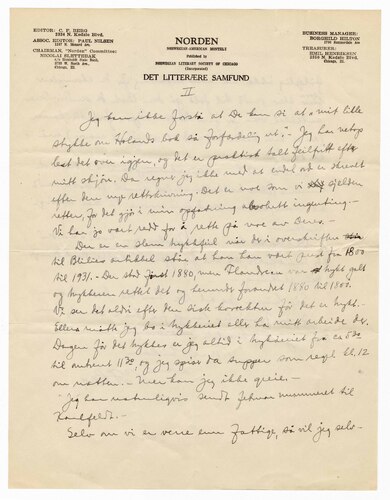 EDITOR: C. F. BERG
2924 N. Kedzie Blvd.
ASSOC. EDITOR: PAUL NILSEN
CHAIRMAN, "Norden" Committee:
NICOLAI SLETTEDAK
Chicago, Ill.
NORDEN
NORWEGIAN-AMERICAN MONTHLY
Published by
NORWEGIAN LITERARY SOCIETY OF CHICAGO
(Incorporated)
DET LITTERÆRE SAMFUND
BUSINESS MANAGER:
BORGHILD HILTON
TREASURER:
EMIL HENRIKSEN
2950 N. Kedzie Blvd.
Chicago, Ill.
II
Jeg kan ikke forstå at De kan si at "mit lille
stykke om Holands bok så forfærdelig ut". - Jeg har netop
lest det over igjen, og det er praktisk talt feilfritt efter
mitt skjøn. Da regner jeg ikke med at endel ord er skrevet
efter den nye rettskrivning. Det er noe som vi sjelden
retter, for det gjør i min opfatning absolutt ingenting.
Vi har jo vært redd for å rette på noe av Deres. -
Der er en slem trykkfeil når det i overskriften
til artikkel står at han har vært prest fra 1800
til 1931. - Der stod 1880, men var trykt galt
og trykkeren rettet det og hermed forandret 1880 til 1800.
Vi ser det aldri efter den siste korrektur før det er trykt. -
Ellers måtte jeg bo i trykkeriet eller ha mitt arbeide der.
Dagen før det trykkes er jeg altid i trykkeriet fra 5.30
til omtrent 11.30, og jeg spiser da supper som regel kl. 12
om natten. - Mer kan jeg ikke greie. -
Jeg har naturligvis sendt februar nummeret til
Karlfeldt. -
Selv om vi er nerre enn fattige, så vil jeg selv-